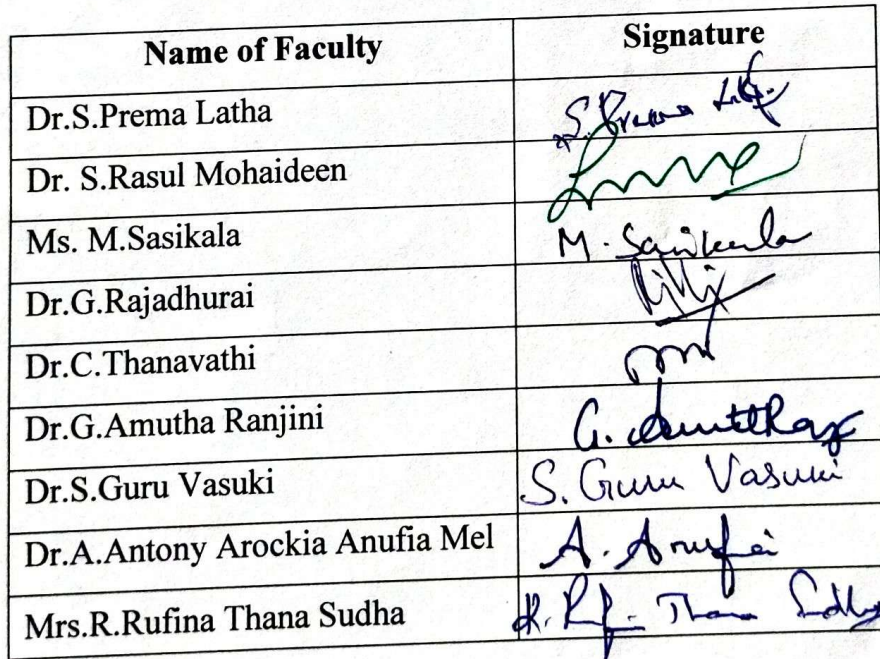 Name of Faculty Signature
Dr.S.Prema Latha S. Prema
Dr. S.Rasul Mohaideen
Ms. M.Sasikala M. Sasikala
Dr.G.Rajadhurai
Dr.C.Thanavathi
Dr.G.Amutha Ranjini G.
Dr.S.Guru Vasuki S. Guru Vasuki
Dr.A.Antony Arockia Anufia Mel A. Anufia
Mrs.R.Rufina Thana Sudha R. Thana Sudha